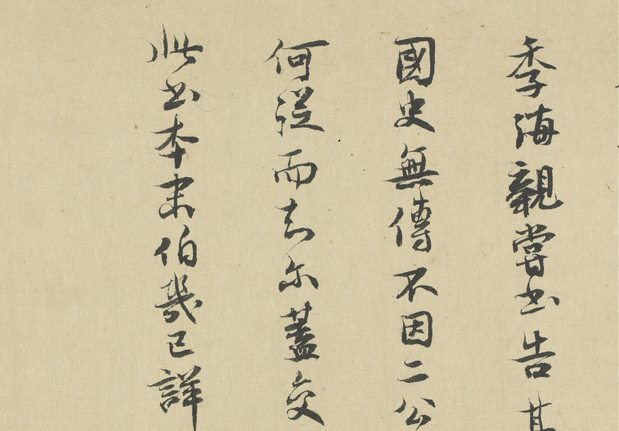 季海親嘗書告其
國史無傳不因二公
何從而知尔蓋交
此書本末伯幾已詳